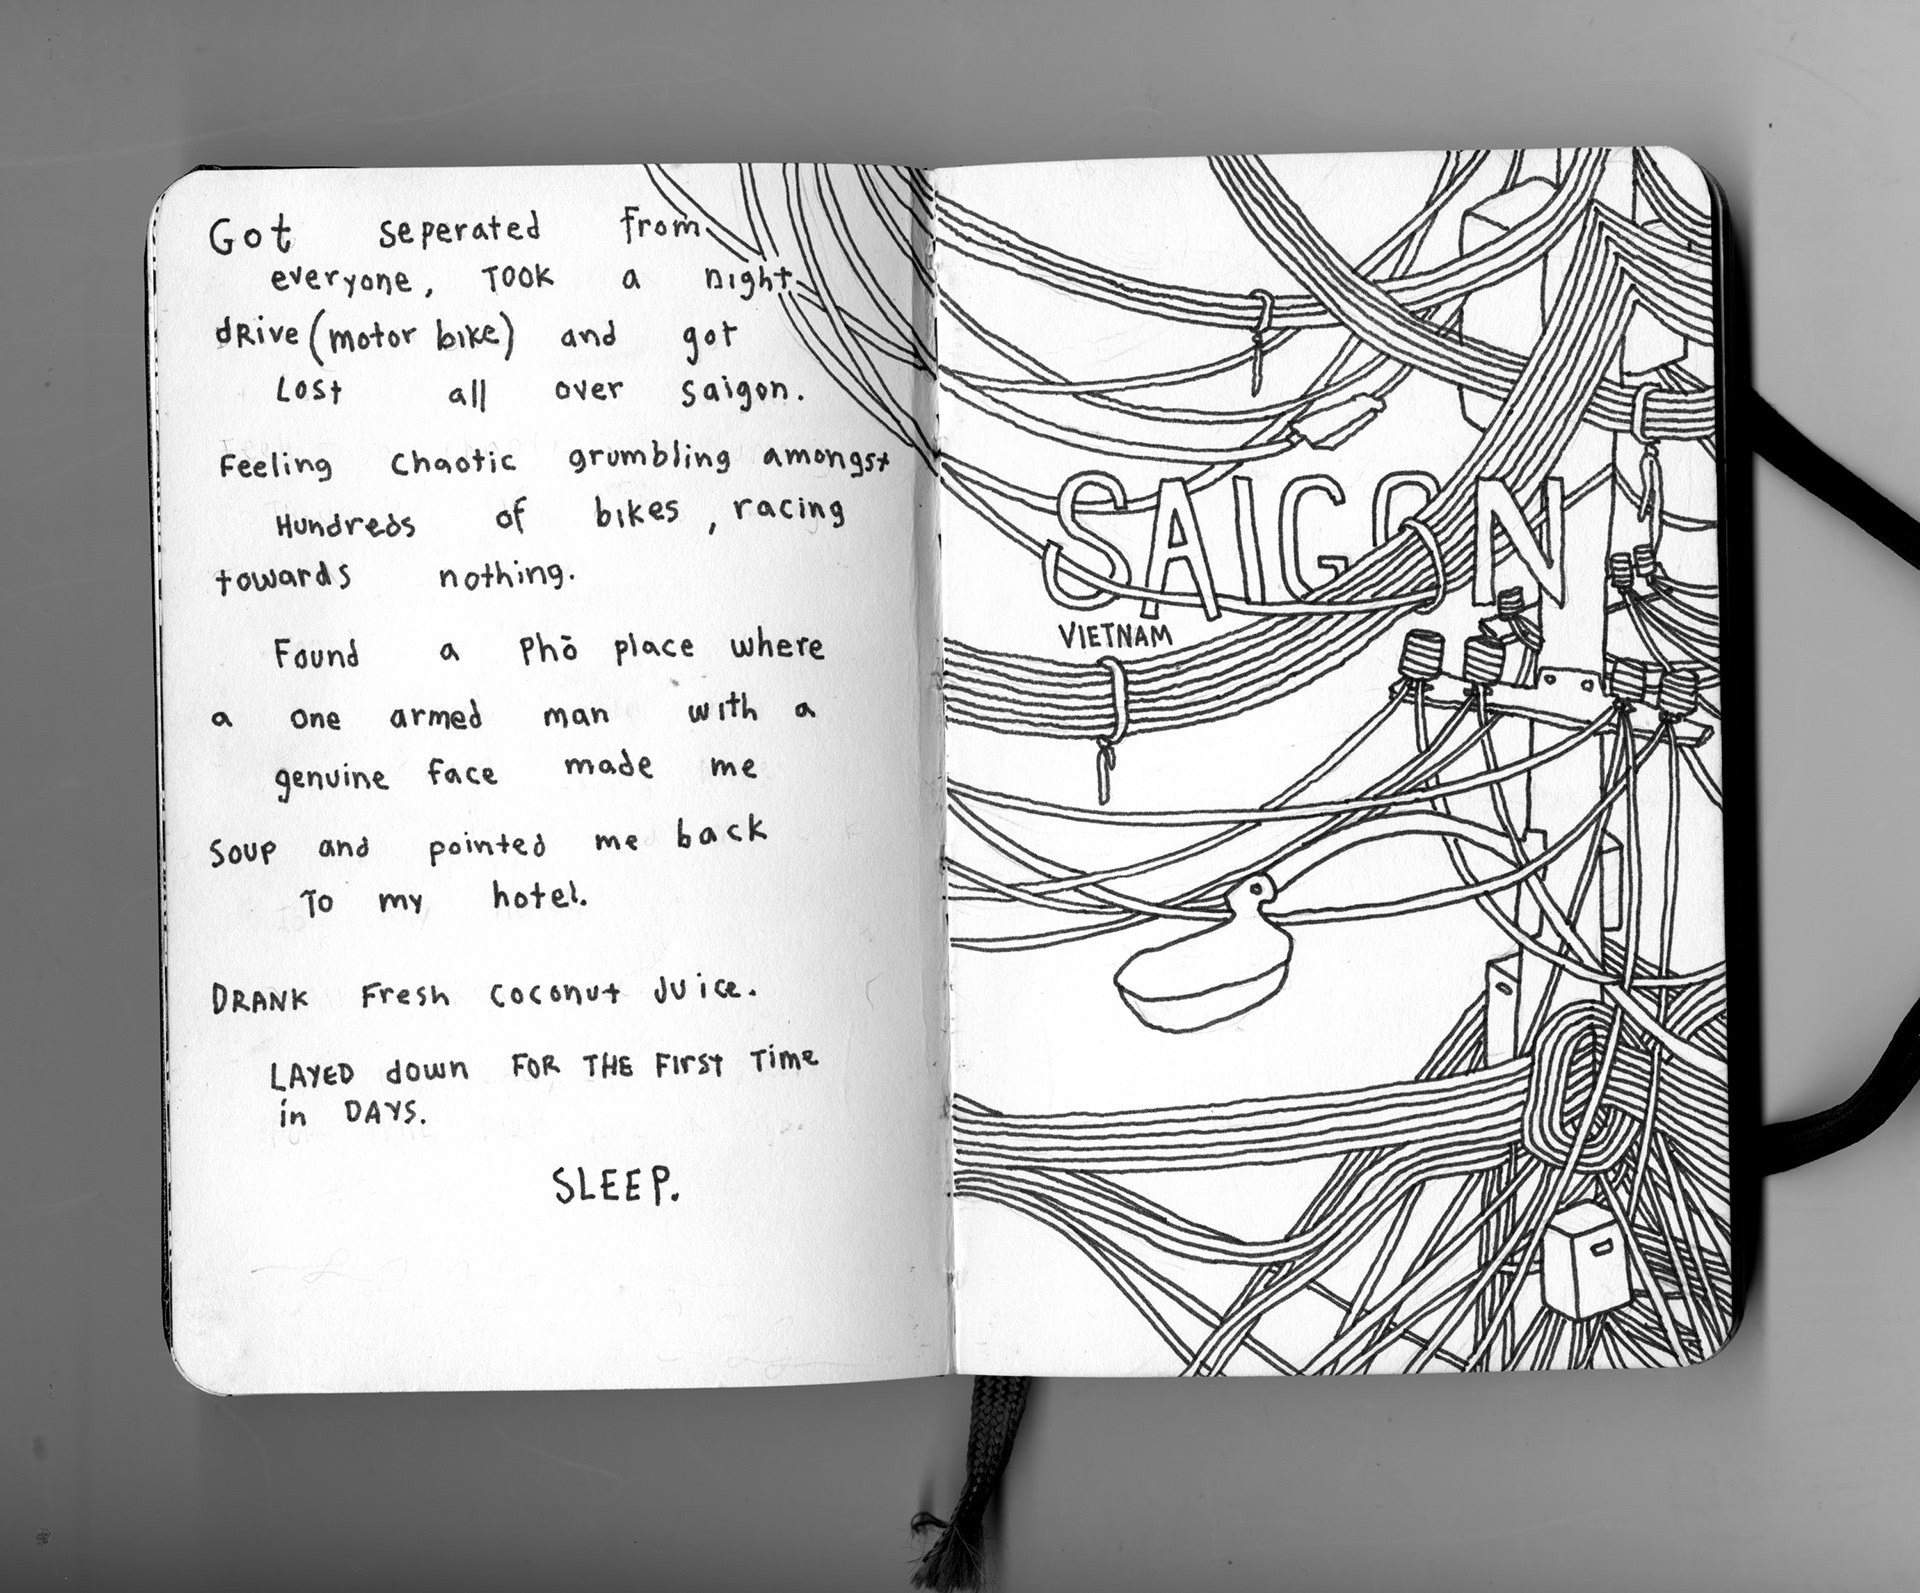 Got seperated from
everyone, TOOK a night
dRive (motor bike) and got
Lost all over Saigon.
Feeling Chaotic grumbling amongst
Hundreds of bikes, racing
towards nothing.
Found a Phō place where
a one armed man with a
genuine face made me
Soup and pointed me back
To my hotel.
DRANK Fresh Coconut Juice.
LAYED down FOR THE FIRST Time
in DAYS.
SLEEP.
SAIGON
VIETNAM